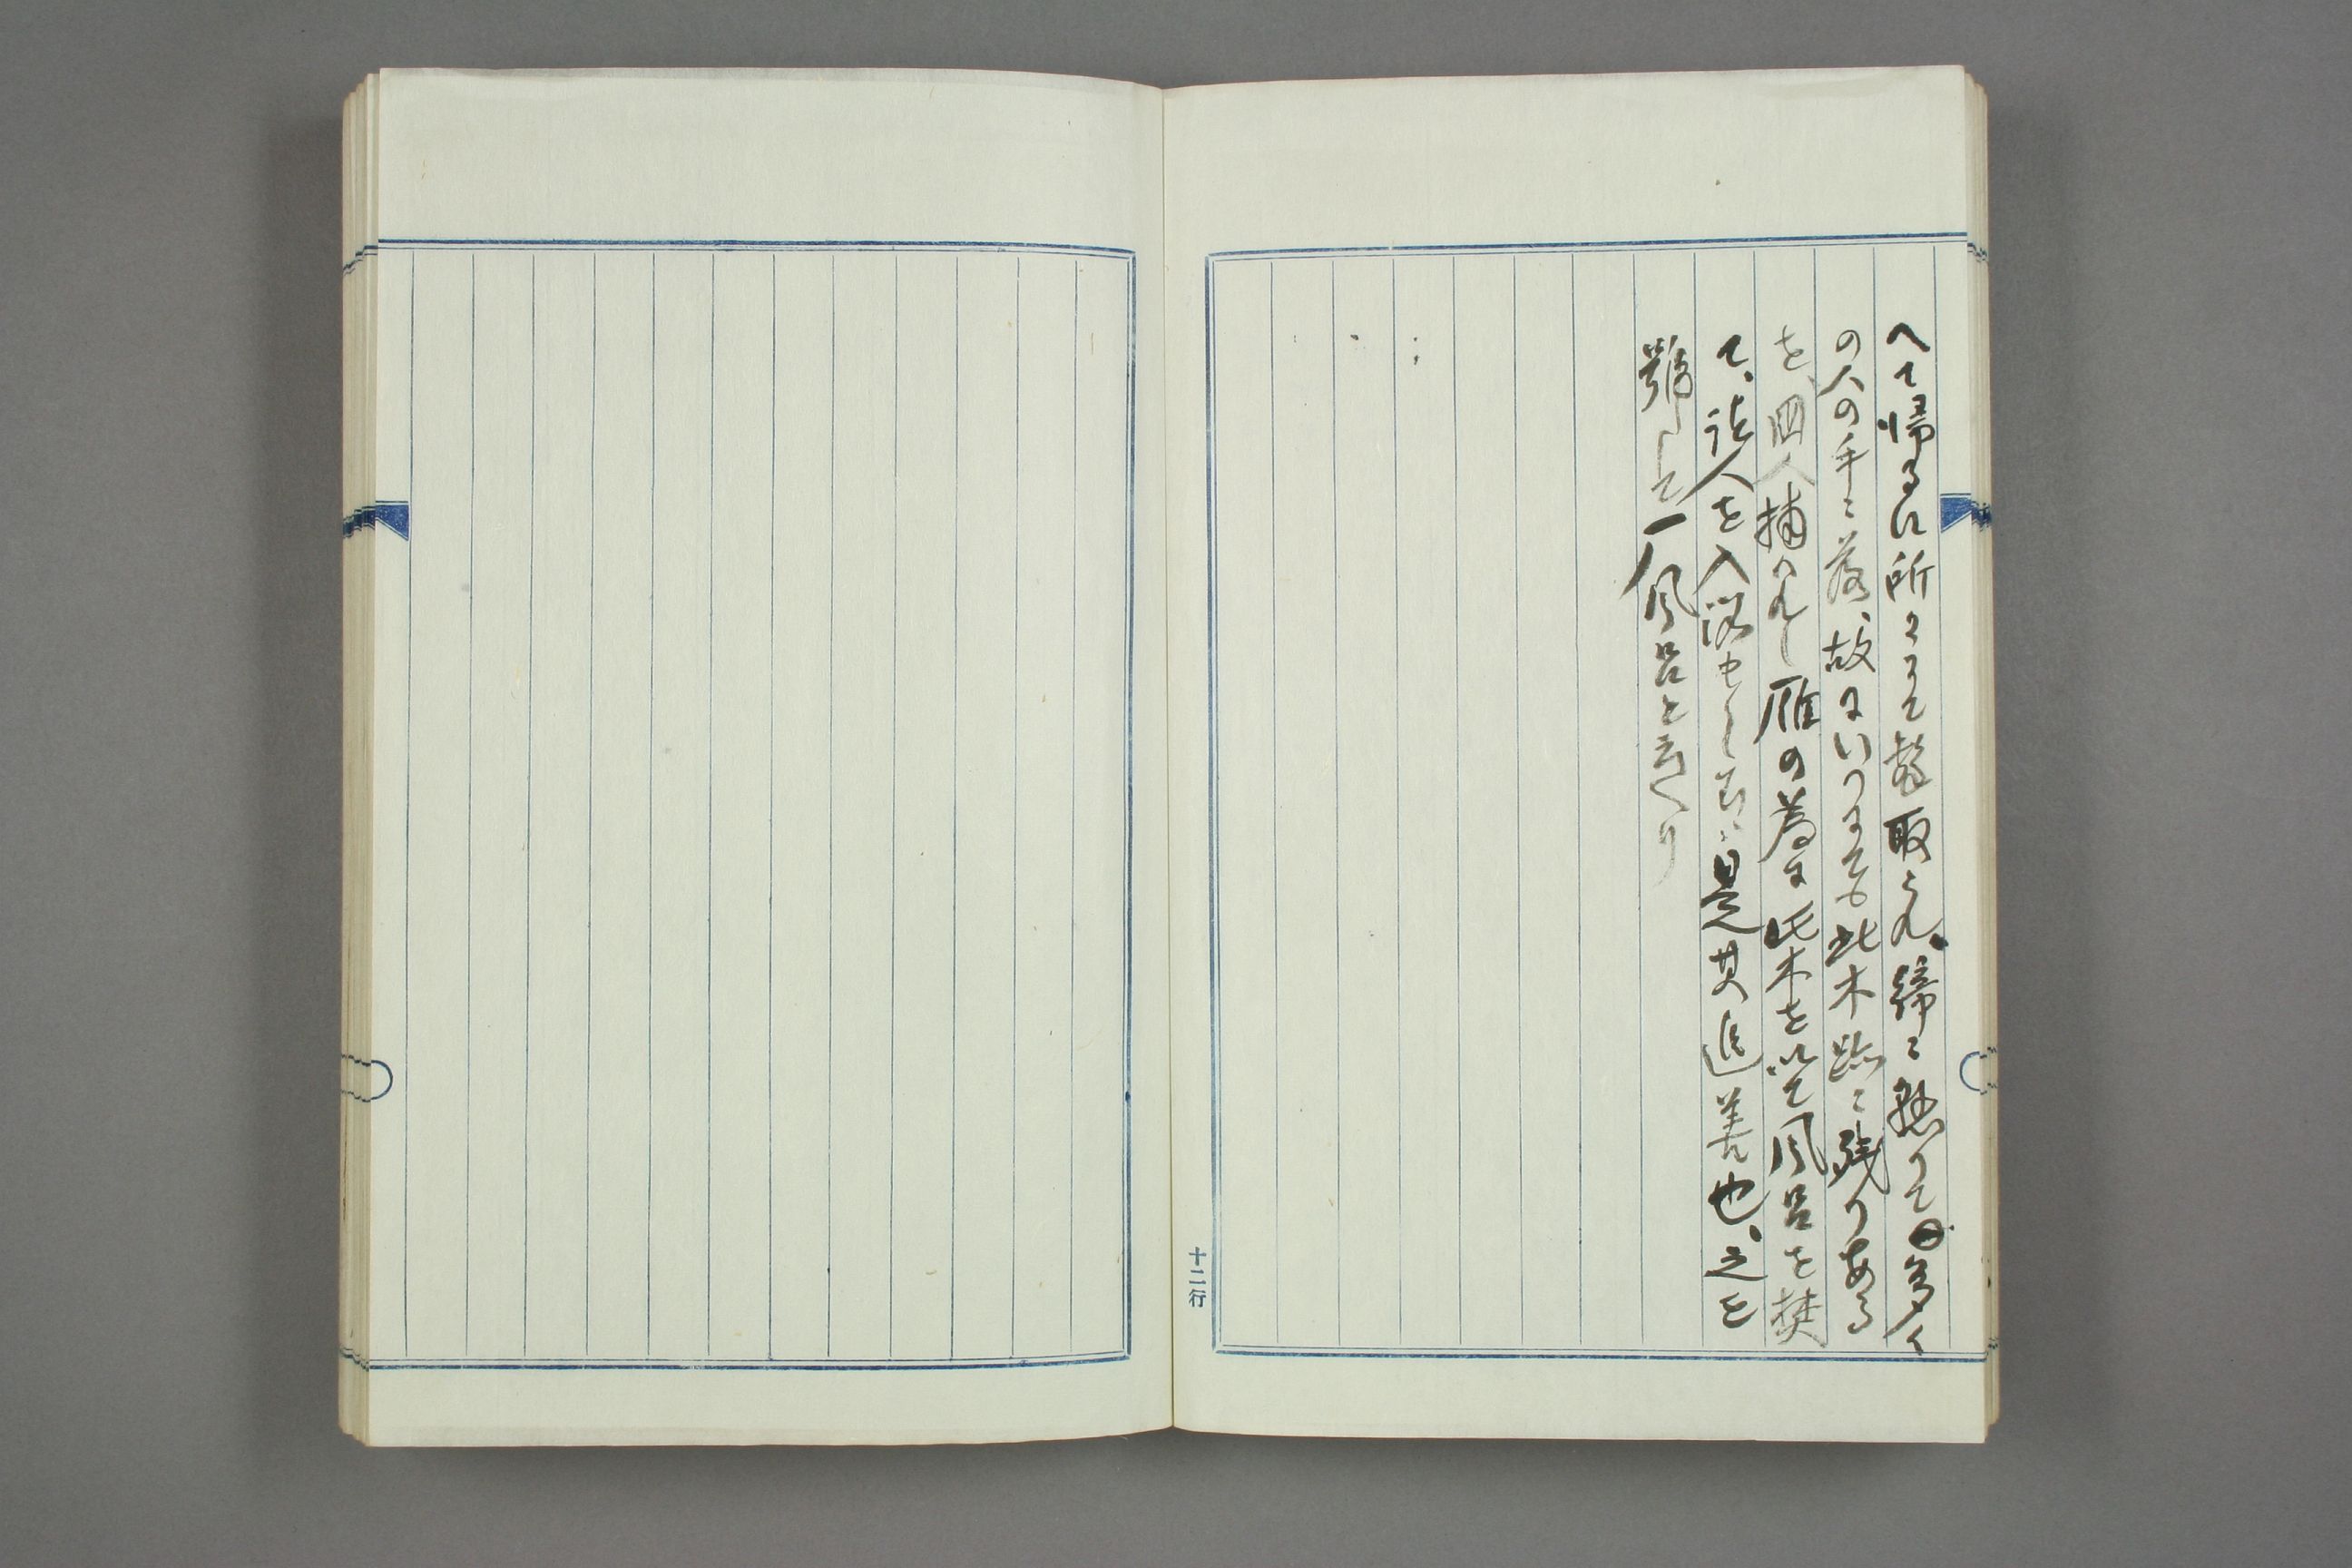 へて帰るに所々にて取られ、ニ懸りて多く
の人の手ニ落、故にいつまでも此木跡ニ残りある
を、国人捕われし雁の為に此木を以て風呂を焚
て、諸人を入浴せしむ、是其追善也、之を
號して風呂と云へり
十二行